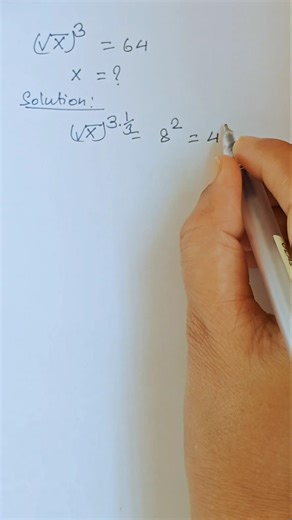 (√x)³ = 64
x = ?
Solution:
(√x)^{3·1/1} = 8² = 4